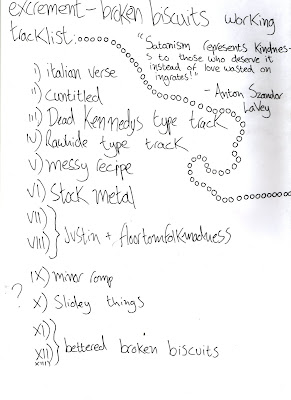 excrement - broken biscuits working
tracklist:
"Satanism represents kindnes-
s to those who deserve it
instead of love wasted on
ingrates!"
- Anton Szandor
LaVey
i) italian verse
ii) cuntitled
iii) Dead Kennedys type track
iv) Rawhide type track
v) messy recipe
vi) Stock metal
vii)
viii)
Justin +
ix) minor romp
? x) Slidey things
xi)
xii)
xiii)
bettered broken biscuits